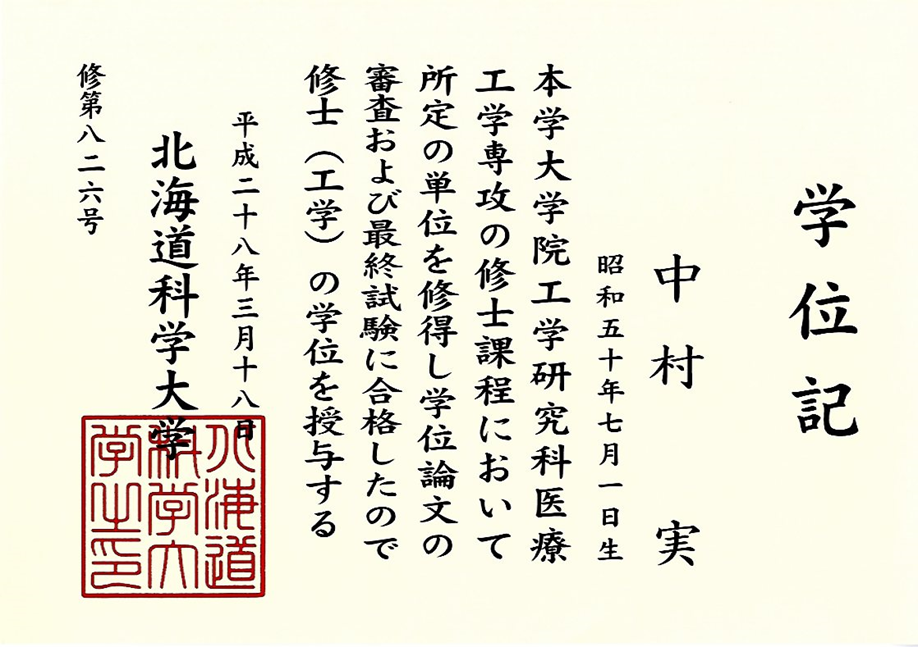 学位記
中村 実
昭和五十年七月一日生
本学大学院工学研究科医療
工学専攻の修士課程において
所定の単位を修得し学位論文の
審査および最終試験に合格したので
修士（工学）の学位を授与する
平成二十八年三月十八日
北海道科学大学
北海道
科学大
学之印
修第八二六号